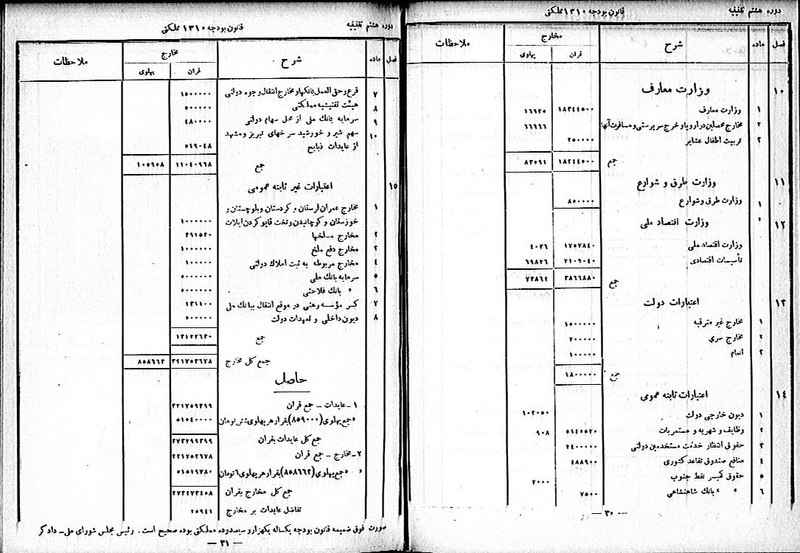 دوره هشتم تقنینیه
قانون بودجه ۱۳۱۰ مملکتی
فصل ماده شرح مخارج ملاحظات
قران پهلوی
۱۰ وزارت معارف
۱ وزارت معارف ۱۸۳۴۴۵۰۰ ۱۶۹۲۵
۲ مخارج محصلین در اروپا و خرج سرپرستی و مسافرت آنها ۶۶۶۶۶
۳ تربیت اطفال عشایر
جمع ۸۳۵۹۱
۱۱ وزارت طرق و شوارع
۱ وزارت طرق و شوارع ۸۵۰۰۰۰
۱۲ وزارت اقتصاد ملی
وزارت اقتصاد ملی ۱۷۵۷۸۴۰ ۴۰۳۶
تأسیسات اقتصادی ۲۱۰۹۰۴۰ ۶۹۸۲۶
جمع ۳۸۶۶۸۸۰ ۷۳۸۶۲
۱۳ اعتبارات دولت
۱ مخارج غیر مترقبه ۱۵۰۰۰۰۰
۲ مخارج سری ۲۰۰۰۰۰
۳ انعام ۱۰۰۰۰۰
جمع ۱۸۰۰۰۰۰
۱۴ اعتبارات ثابته عمومی
۱ دیون خارجی دولت ۱۰۲۰۵۰
۲ وظایف و شهریه و مستمریات ۹۰۸
۳ حقوق انتظار خدمت مستخدمین دولتی ۲۴۰۰۰۰۰
۴ منافع صندوق تقاعد کشوری ۴۸۸۹۰۰
۵ حقوق کمیسر نفط جنوب ۲۰۰۰
۶ » » بانک شاهنشاهی ۷۵۰۰
— ۳۰ —
دوره هشتم تقنینیه
قانون بودجه ۱۳۱۰ مملکتی
فصل ماده شرح مخارج ملاحظات
قران پهلوی
۷ فرع و حق العمل بانکها و مخارج انتقال وجوه دولتی ۱۵۰۰۰۰۰
۸ هیئت تفتیشیه مملکتی ۵۰۰۰۰۰
۹ سرمایه بانک ملی از محل سهام دولتی ۴۸۰۰۰۰
۱۰ سهم شیر و خورشید سرخهای تبریز و مشهد
از عایدات ذبایح ۵۱۹۰۴۸
جمع ۱۱۰۴۰۹۶۸ ۱۰۵۹۵۸
۱۵ اعتبارات غیر ثابته عمومی
۱ مخارج عمران لرستان و کردستان و بلوچستان و
خوزستان و کوچانیدن و تخت قاپو کردن ایلات ۱۰۰۰۰۰۰
۲ مخارج مسلخها ۴۹۱۵۳۰
۳ مخارج دفع ملخ
۴ مخارج مربوطه به ثبت املاک دولتی ۱۰۰۰۰۰
۵ سرمایه بانک ملی
۶ » بانک فلاحتی
۷ کسر مؤسسه رهنی در موقع انتقال ببانک ملی ۱۳۱۱۰۰
۸ دیون داخلی و تعهدات دولت
جمع ۱۳۱۲۲۶۳۰
جمع کل مخارج ۲۲۱۷۵۳۶۷۸ ۸۵۸۶۶۳
حاصل
۱ – عایدات – جمع قران ۲۲۱۷۵۹۳۹۹
» جمع پهلوی (۸۵۹۰۰۰) بقرار هر پهلوی شش تومان ۵۱۵۴۰۰۰۰
جمع کل عایدات بقران ۲۷۳۲۹۹۳۹۹
۲ – مخارج – جمع قران ۲۲۱۷۵۳۶۷۸
» جمع پهلوی (۸۵۸۶۶۳) بقرار هر پهلوی ۶ تومان ۵۱۵۱۹۷۸۰
جمع کل مخارج بقران ۲۷۳۲۷۳۴۵۸
تفاضل عایدات بر مخارج ۲۵۹۴۱
صورت فوق ضمیمه قانون بودجه یکساله یکهزار و سیصد و ده مملکتی بوده صحیح است . رئیس مجلس شورای ملی – دادگر
— ۳۱ —